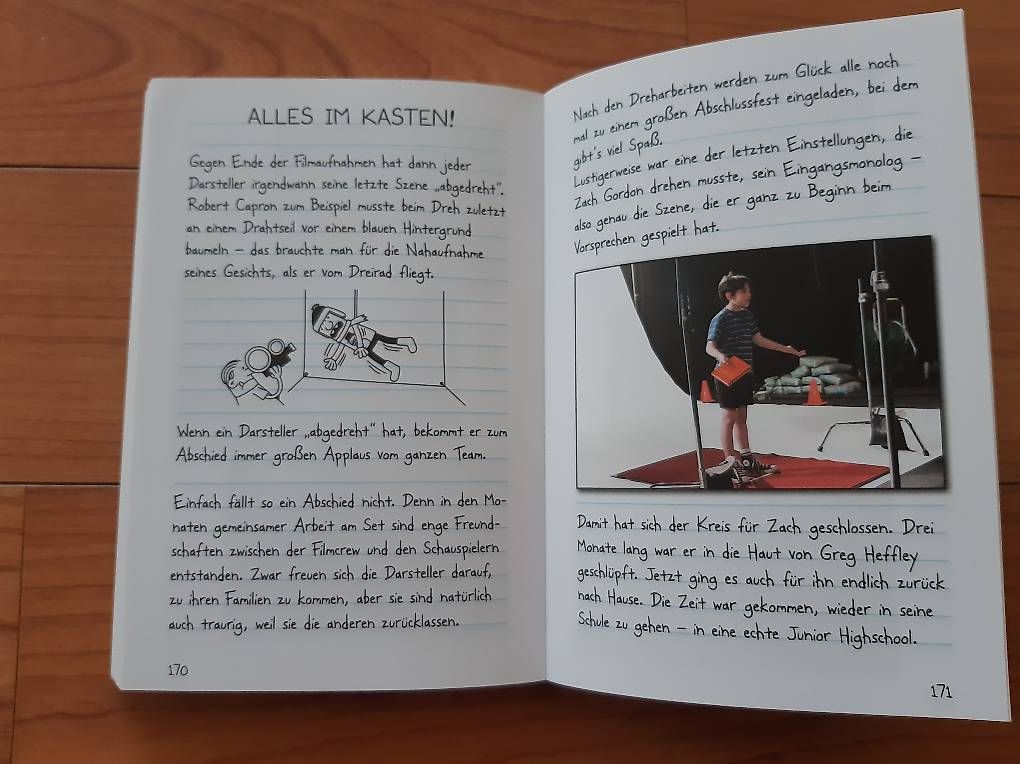 ALLES IM KASTEN!
Gegen Ende der Filmaufnahmen hat dann jeder
Darsteller irgendwann seine letzte Szene „abgedreht".
Robert Capron zum Beispiel musste beim Dreh zuletzt
an einem Drahtseil vor einem blauen Hintergrund
baumeln – das brauchte man für die Nahaufnahme
seines Gesichts, als er vom Dreirad fliegt.
Wenn ein Darsteller „abgedreht" hat, bekommt er zum
Abschied immer großen Applaus vom ganzen Team.
Einfach fällt so ein Abschied nicht. Denn in den Mo-
naten gemeinsamer Arbeit am Set sind enge Freund-
schaften zwischen der Filmcrew und den Schauspielern
entstanden. Zwar freuen sich die Darsteller darauf,
zu ihren Familien zu kommen, aber sie sind natürlich
auch traurig, weil sie die anderen zurücklassen.
170
Nach den Dreharbeiten werden zum Glück alle noch
mal zu einem großen Abschlussfest eingeladen, bei dem
gibt's viel Spaß.
Lustigerweise war eine der letzten Einstellungen, die
Zach Gordon drehen musste, sein Eingangsmonolog –
also genau die Szene, die er ganz zu Beginn beim
Vorsprechen gespielt hat.
Damit hat sich der Kreis für Zach geschlossen. Drei
Monate lang war er in die Haut von Greg Heffley
geschlüpft. Jetzt ging es auch für ihn endlich zurück
nach Hause. Die Zeit war gekommen, wieder in seine
Schule zu gehen – in eine echte Junior Highschool.
171